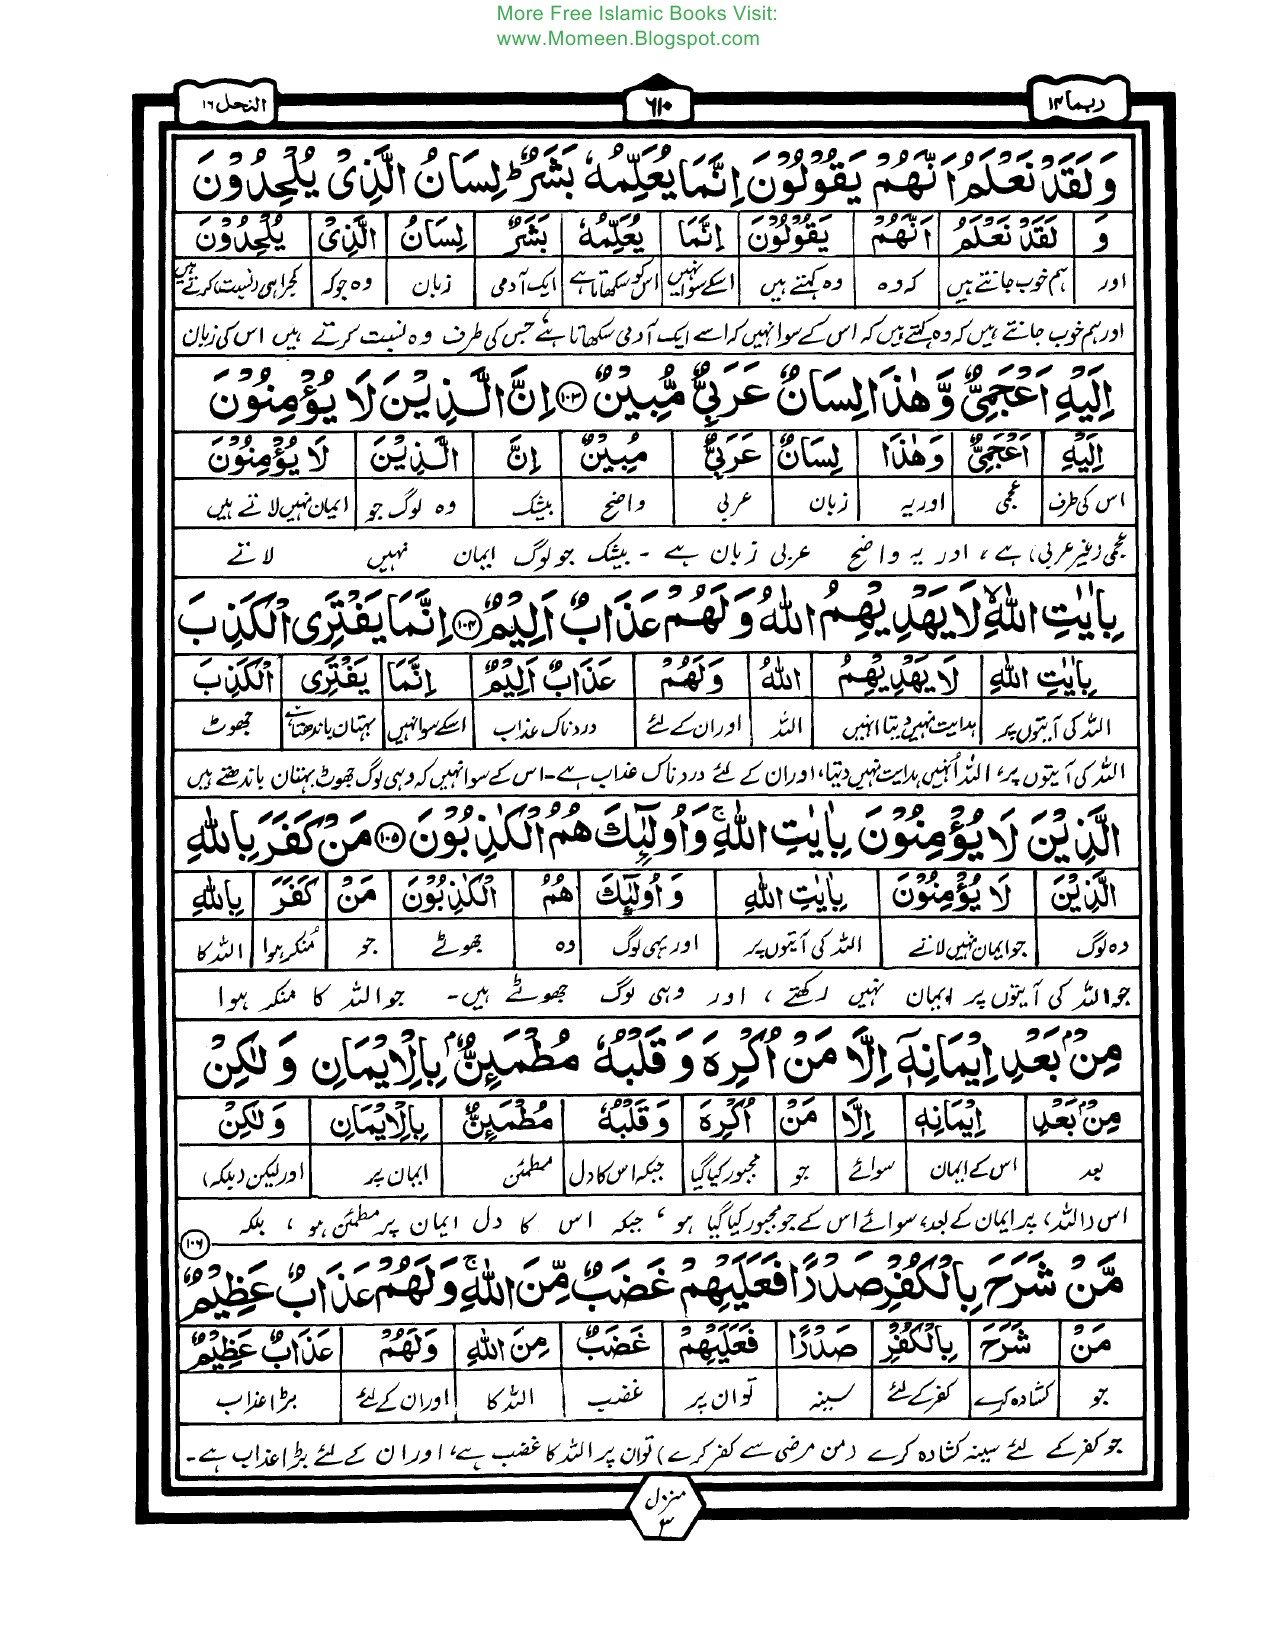 More Free Islamic Books Visit:
www.Momeen.Blogspot.com
ربما ۱۴
۶۱۰
النحل ۱۶
وَلَقَدْ نَعْلَمُ اَنَّهُمْ يَقُوْلُوْنَ اِنَّمَا يُعَلِّمُهٗ بَشَرٌ ؕ لِسَانُ الَّذِىْ يُلْحِدُوْنَ
وَ لَقَدْ نَعْلَمُ اَنَّهُمْ يَقُوْلُوْنَ اِنَّمَا يُعَلِّمُهٗ بَشَرٌ لِسَانُ الَّذِىْ يُلْحِدُوْنَ
اور ہم خوب جانتے ہیں کہ وہ وہ کہتے ہیں اسکے سوا نہیں اس کو سکھاتا ہے ایک آدمی زبان وہ جو کہ کجراہی (نسبت) کرتے ہیں
اور ہم خوب جانتے ہیں کہ وہ کہتے ہیں کہ اس کے سوا نہیں کہ اسے ایک آدمی سکھاتا ہے جس کی طرف وہ نسبت کرتے ہیں اس کی زبان
اِلَيْهِ اَعْجَمِىٌّ وَّهٰذَا لِسَانٌ عَرَبِىٌّ مُّبِيْنٌ ۱۰۳ اِنَّ الَّذِيْنَ لَا يُؤْمِنُوْنَ
اِلَيْهِ اَعْجَمِىٌّ وَهٰذَا لِسَانٌ عَرَبِىٌّ مُبِيْنٌ اِنَّ الَّذِيْنَ لَا يُؤْمِنُوْنَ
اس کی طرف عجمی اور یہ زبان عربی واضح بیشک وہ لوگ جو ایمان نہیں لاتے ہیں
عجمی (غیر عربی) ہے، اور یہ واضح عربی زبان ہے ۔ بیشک جو لوگ ایمان نہیں لاتے
بِاٰيٰتِ اللّٰهِ ۙ لَا يَهْدِيْهِمُ اللّٰهُ وَلَهُمْ عَذَابٌ اَلِيْمٌ ۱۰۴ اِنَّمَا يَفْتَرِى الْكَذِبَ
بِاٰيٰتِ اللّٰهِ لَا يَهْدِيْهِمُ اللّٰهُ وَلَهُمْ عَذَابٌ اَلِيْمٌ اِنَّمَا يَفْتَرِى الْكَذِبَ
اللہ کی آیتوں پر ہدایت نہیں دیتا انہیں اللہ اور ان کے لئے دردناک عذاب اسکے سوا نہیں بہتان باندھتا ہے جھوٹ
اللہ کی آیتوں پر، اللہ اُنہیں ہدایت نہیں دیتا، اور ان کے لئے دردناک عذاب ہے۔ اس کے سوا نہیں کہ وہی لوگ جھوٹ بہتان باندھتے ہیں
الَّذِيْنَ لَا يُؤْمِنُوْنَ بِاٰيٰتِ اللّٰهِ ۚ وَاُولٰٓئِكَ هُمُ الْكٰذِبُوْنَ ۱۰۵ مَنْ كَفَرَ بِاللّٰهِ
الَّذِيْنَ لَا يُؤْمِنُوْنَ بِاٰيٰتِ اللّٰهِ وَ اُولٰٓئِكَ هُمُ الْكٰذِبُوْنَ مَنْ كَفَرَ بِاللّٰهِ
وہ لوگ جو ایمان نہیں لاتے اللہ کی آیتوں پر اور یہی لوگ وہ جھوٹے جو مُنکر ہوا اللہ کا
جو اللہ کی آیتوں پر ایمان نہیں رکھتے ، اور وہی لوگ جھوٹے ہیں۔ جو اللہ کا منکر ہوا
مِنْۢ بَعْدِ اِيْمَانِهٖٓ اِلَّا مَنْ اُكْرِهَ وَ قَلْبُهٗ مُطْمَئِنٌّۢ بِالْاِيْمَانِ وَ لٰكِنْ
مِنْۢ بَعْدِ اِيْمَانِهٖ اِلَّا مَنْ اُكْرِهَ وَ قَلْبُهٗ مُطْمَئِنٌّ بِالْاِيْمَانِ وَ لٰكِنْ
بعد اس کے ایمان سوائے جو مجبور کیا گیا جبکہ اس کا دل مطمئن ایمان پر اور لیکن (بلکہ)
اس (اللہ) پر ایمان کے بعد، سوائے اس کے جو مجبور کیا گیا ہو، جبکہ اس کا دل ایمان پر مطمئن ہو ، بلکہ
۱۰۶
مَّنْ شَرَحَ بِالْكُفْرِ صَدْرًا فَعَلَيْهِمْ غَضَبٌ مِّنَ اللّٰهِ ۚ وَلَهُمْ عَذَابٌ عَظِيْمٌ
مَنْ شَرَحَ بِالْكُفْرِ صَدْرًا فَعَلَيْهِمْ غَضَبٌ مِنَ اللّٰهِ وَلَهُمْ عَذَابٌ عَظِيْمٌ
جو کشادہ کرے کفر کے لئے سینہ تو ان پر غضب اللہ کا اور ان کے لئے بڑا عذاب
جو کفر کے لئے سینہ کشادہ کرے (من مرضی سے کفر کرے) تو ان پر اللہ کا غضب ہے، اور ان کے لئے بڑا عذاب ہے۔
منزل
۳